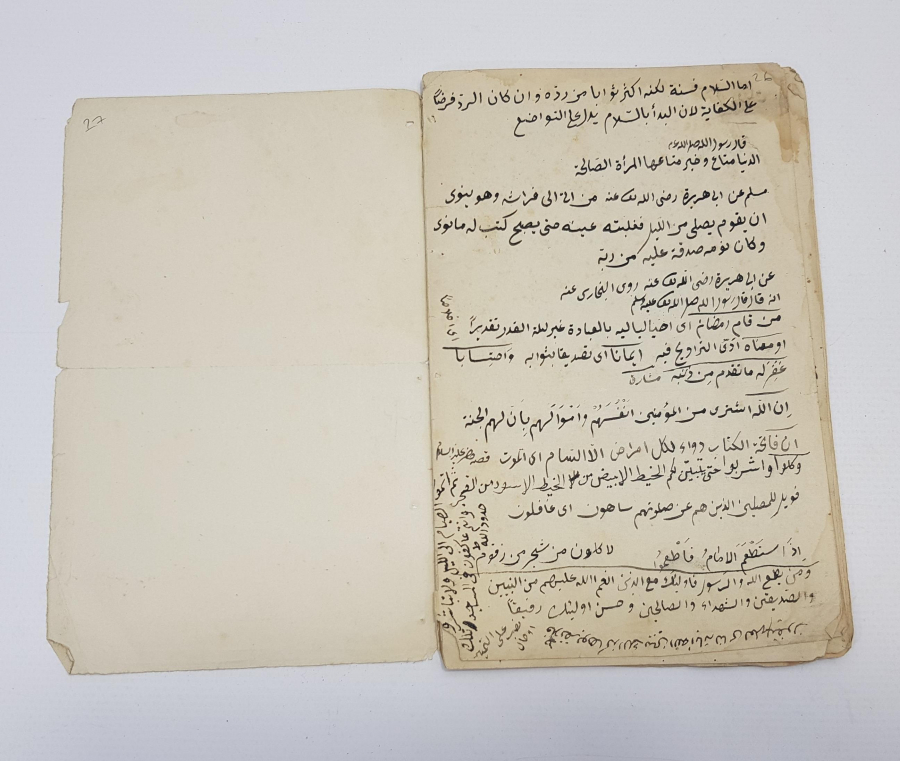 26
اما السلام فسنة لكنه اكثر ثوابا من رده وان كان الرد فرضا
على الكفاية لان البدأ بالسلام يدل على التواضع
قال رسول الله صلى الله
الدنيا متاع وخير متاعها المرأة الصالحة
مسلم عن ابى هريرة رضى الله تعالى عنه من اتى الى فراشه وهو ينوى
ان يقوم يصلى من الليل فغلبته عينه حتى يصبح كتب له ما نوى
وكان نومه صدقة عليه من ربه
عن ابى هريرة رضى الله تعالى عنه روى البخارى عنه
انه قال قال رسول الله صلى الله تعالى عليه وسلم
من قام رمضان اى احيا لياليه بالعبادة غير ليلة القدر تقديرا
او معناه ادّى التراويح فيه ايمانا اى تصديقا بثوابه واحتسابا
غفر له ما تقدم من ذنبه مشارق
ان الله اشترى من المؤمنين انفسهم واموالهم بان لهم الجنة
ان فاتحة الكتاب دواء لكل امراض الا السام اى الموت
وكلوا واشربوا حتى يتبين لكم الخيط الابيض من الخيط الاسود من الفجر
ثم اتموا الصيام الى الليل ولا تباشروهن
وانتم عاكفون فى المساجد تلك
حدود الله
فويل للمصلين الذين هم عن صلوتهم ساهون اى غافلون
اذا استطعم الامام فاطعموا
لاكلون من شجر من زقوم
ومن يطع الله والرسول فاولئك مع الذين انعم الله عليهم من النبيين
والصديقين والشهداء والصالحين وحسن اولئك رفيقا
27